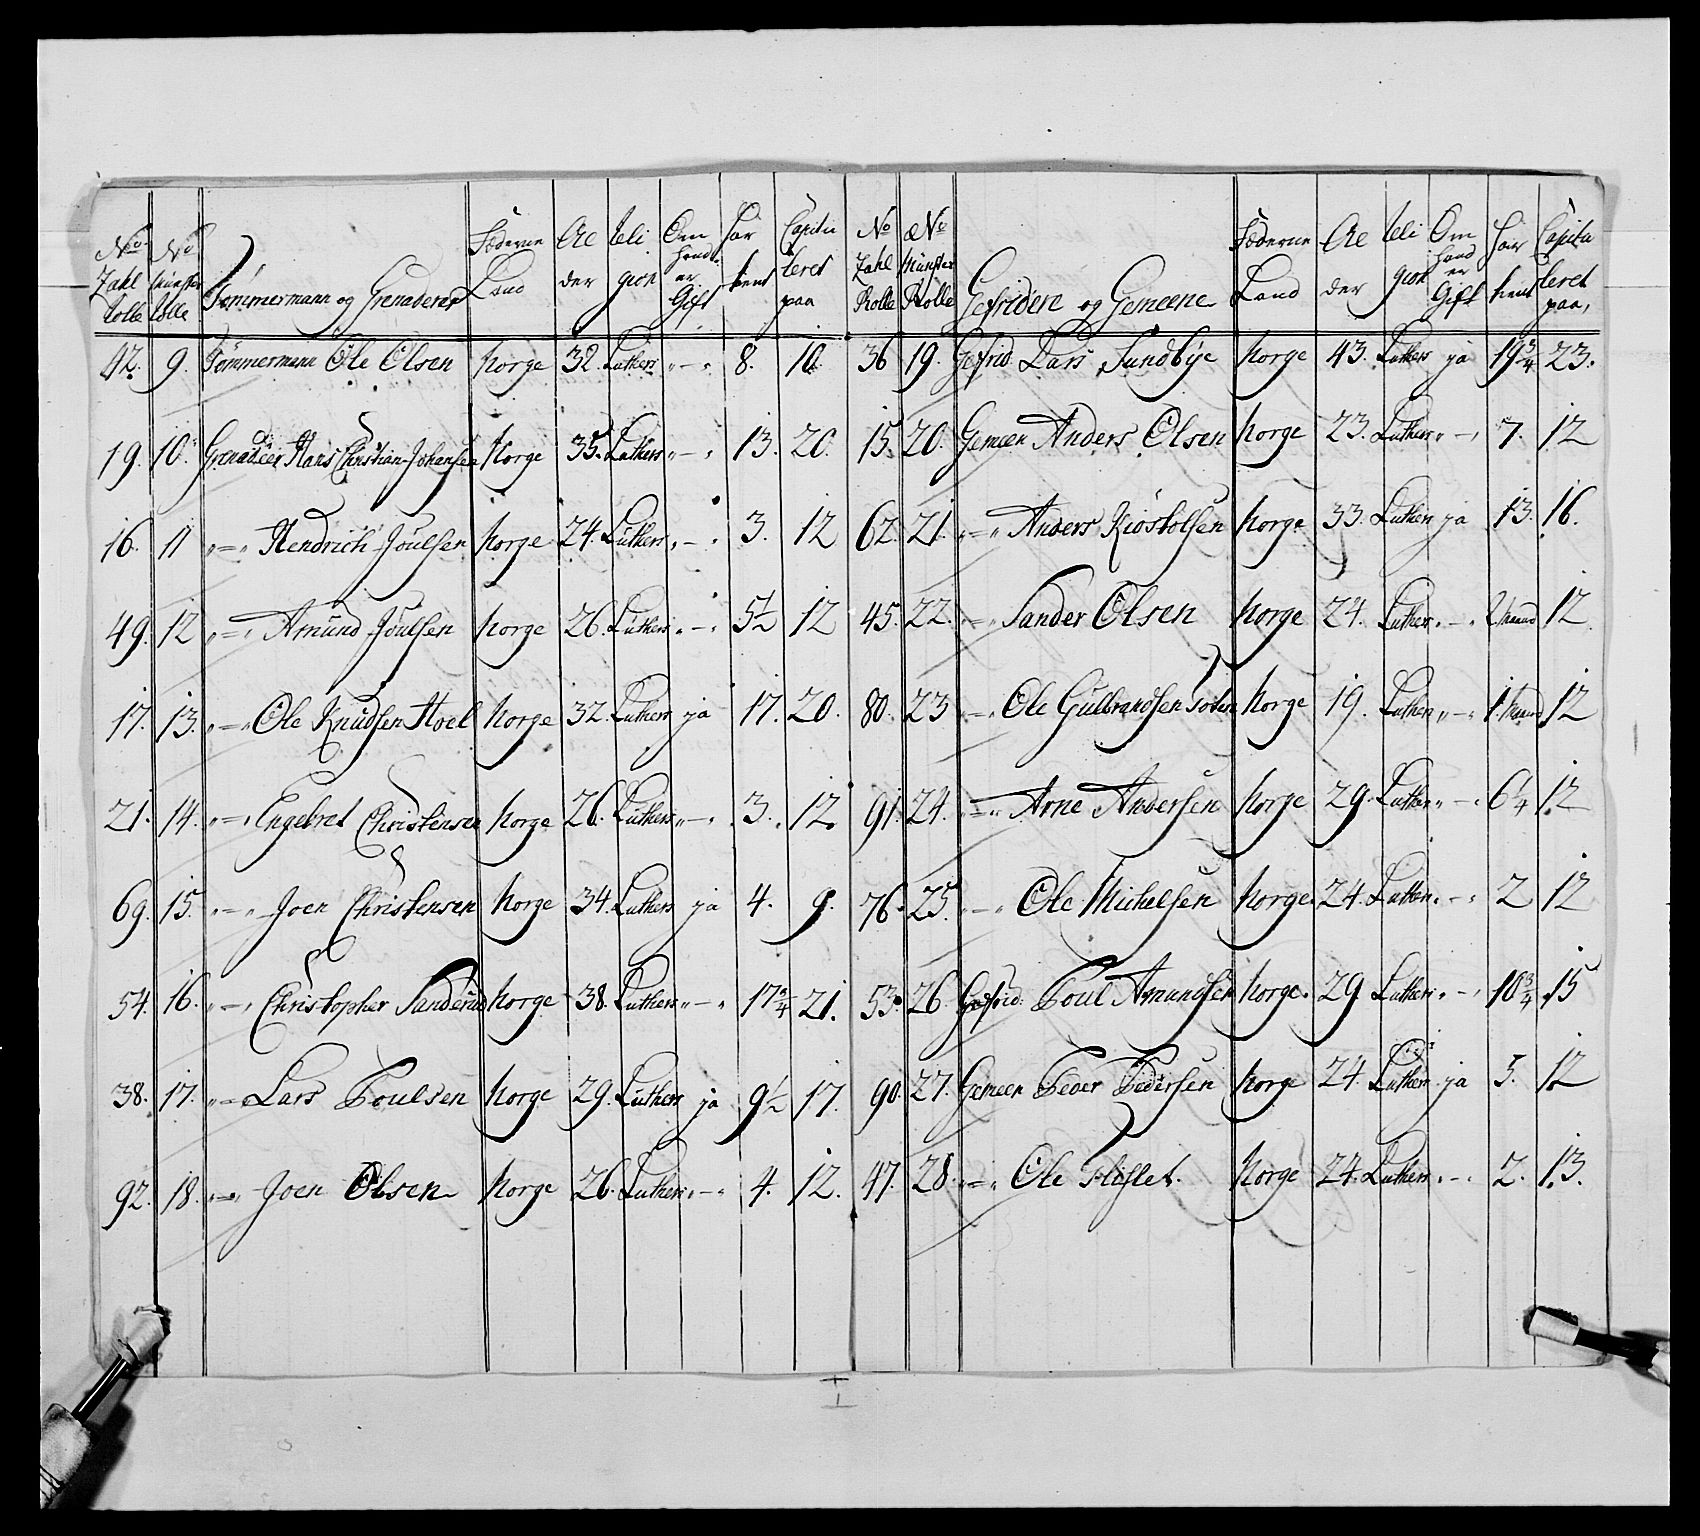 No Zahl Rolle | No Münster Rolle | Tömmermann og Grenaderer | Föderne Land | Al der | Reli gion | Om hand er Gift | har tient | Capitu leret paa
42. 9. Tömmermann Ole Olsen Norge 32. Luthers „—„ 8. 10.
19. 10. Grenadeer Hans Christian Johansen Norge 35. Luthers „—„ 13. 20.
16. 11 „—„ Hendrich Joulsen Norge 24. Luthers „—„ 3. 12
49. 12 „—„ Amund Joulsen Norge 26. Luthers „—„ 5½ 12
17. 13. „—„ Ole Knudsen Hoel Norge 32. Luthers ja 17. 20.
21. 14. „—„ Engebret Christensen Norge 26. Luthers „—„ 3. 12.
69. 15. „—„ Joen Christensen Norge 34. Luthers ja 4. 9.
54. 16. „—„ Christopher Sanderud Norge 38. Luthers „—„ 17¾ 21.
38. 17. „—„ Lars Poulsen Norge 29. Luthers ja 9½ 17.
92. 18. „—„ Joen Olsen Norge 26. Luthers „—„ 4. 12.
No Zahl Rolle | No Münster Rolle | Gefriden og Gemeene | Föderne Land | Al der | Reli gion | Om hand er Gift | har tient | Capitu leret paa,
36 19. Gefrid. Lars Sundbye Norge 43. Luthers ja 19¾ 23.
15. 20. Gemeen Anders Olsen Norge 23. Luthers „—„ 7. 12
62. 21. „—„ Anders Kiöstolsen Norge 33. Luthers ja 13. 16.
45. 22. „—„ Sander Olsen Norge 24. Luthers „—„ 2 Maand 12
80. 23 „—„ Ole Gulbrandsen Norge 19. Luthers „—„ 1 Maand 12
91. 24. „—„ Arne Andersen Norge 29. Luthers „—„ 6¼ 12
76. 25. „—„ Ole Michelsen Norge 24. Luthers „—„ 2 12
53. 26. Gefrid. Poul Amundsen Norge. 29 Luthers „—„ 10¾ 15
90. 27. Gemeen Peder Pedersen Norge 24. Luthers ja 5. 12
47. 28. „—„ Ole Flislet. Norge 24. Luthers „—„ 2. 13.